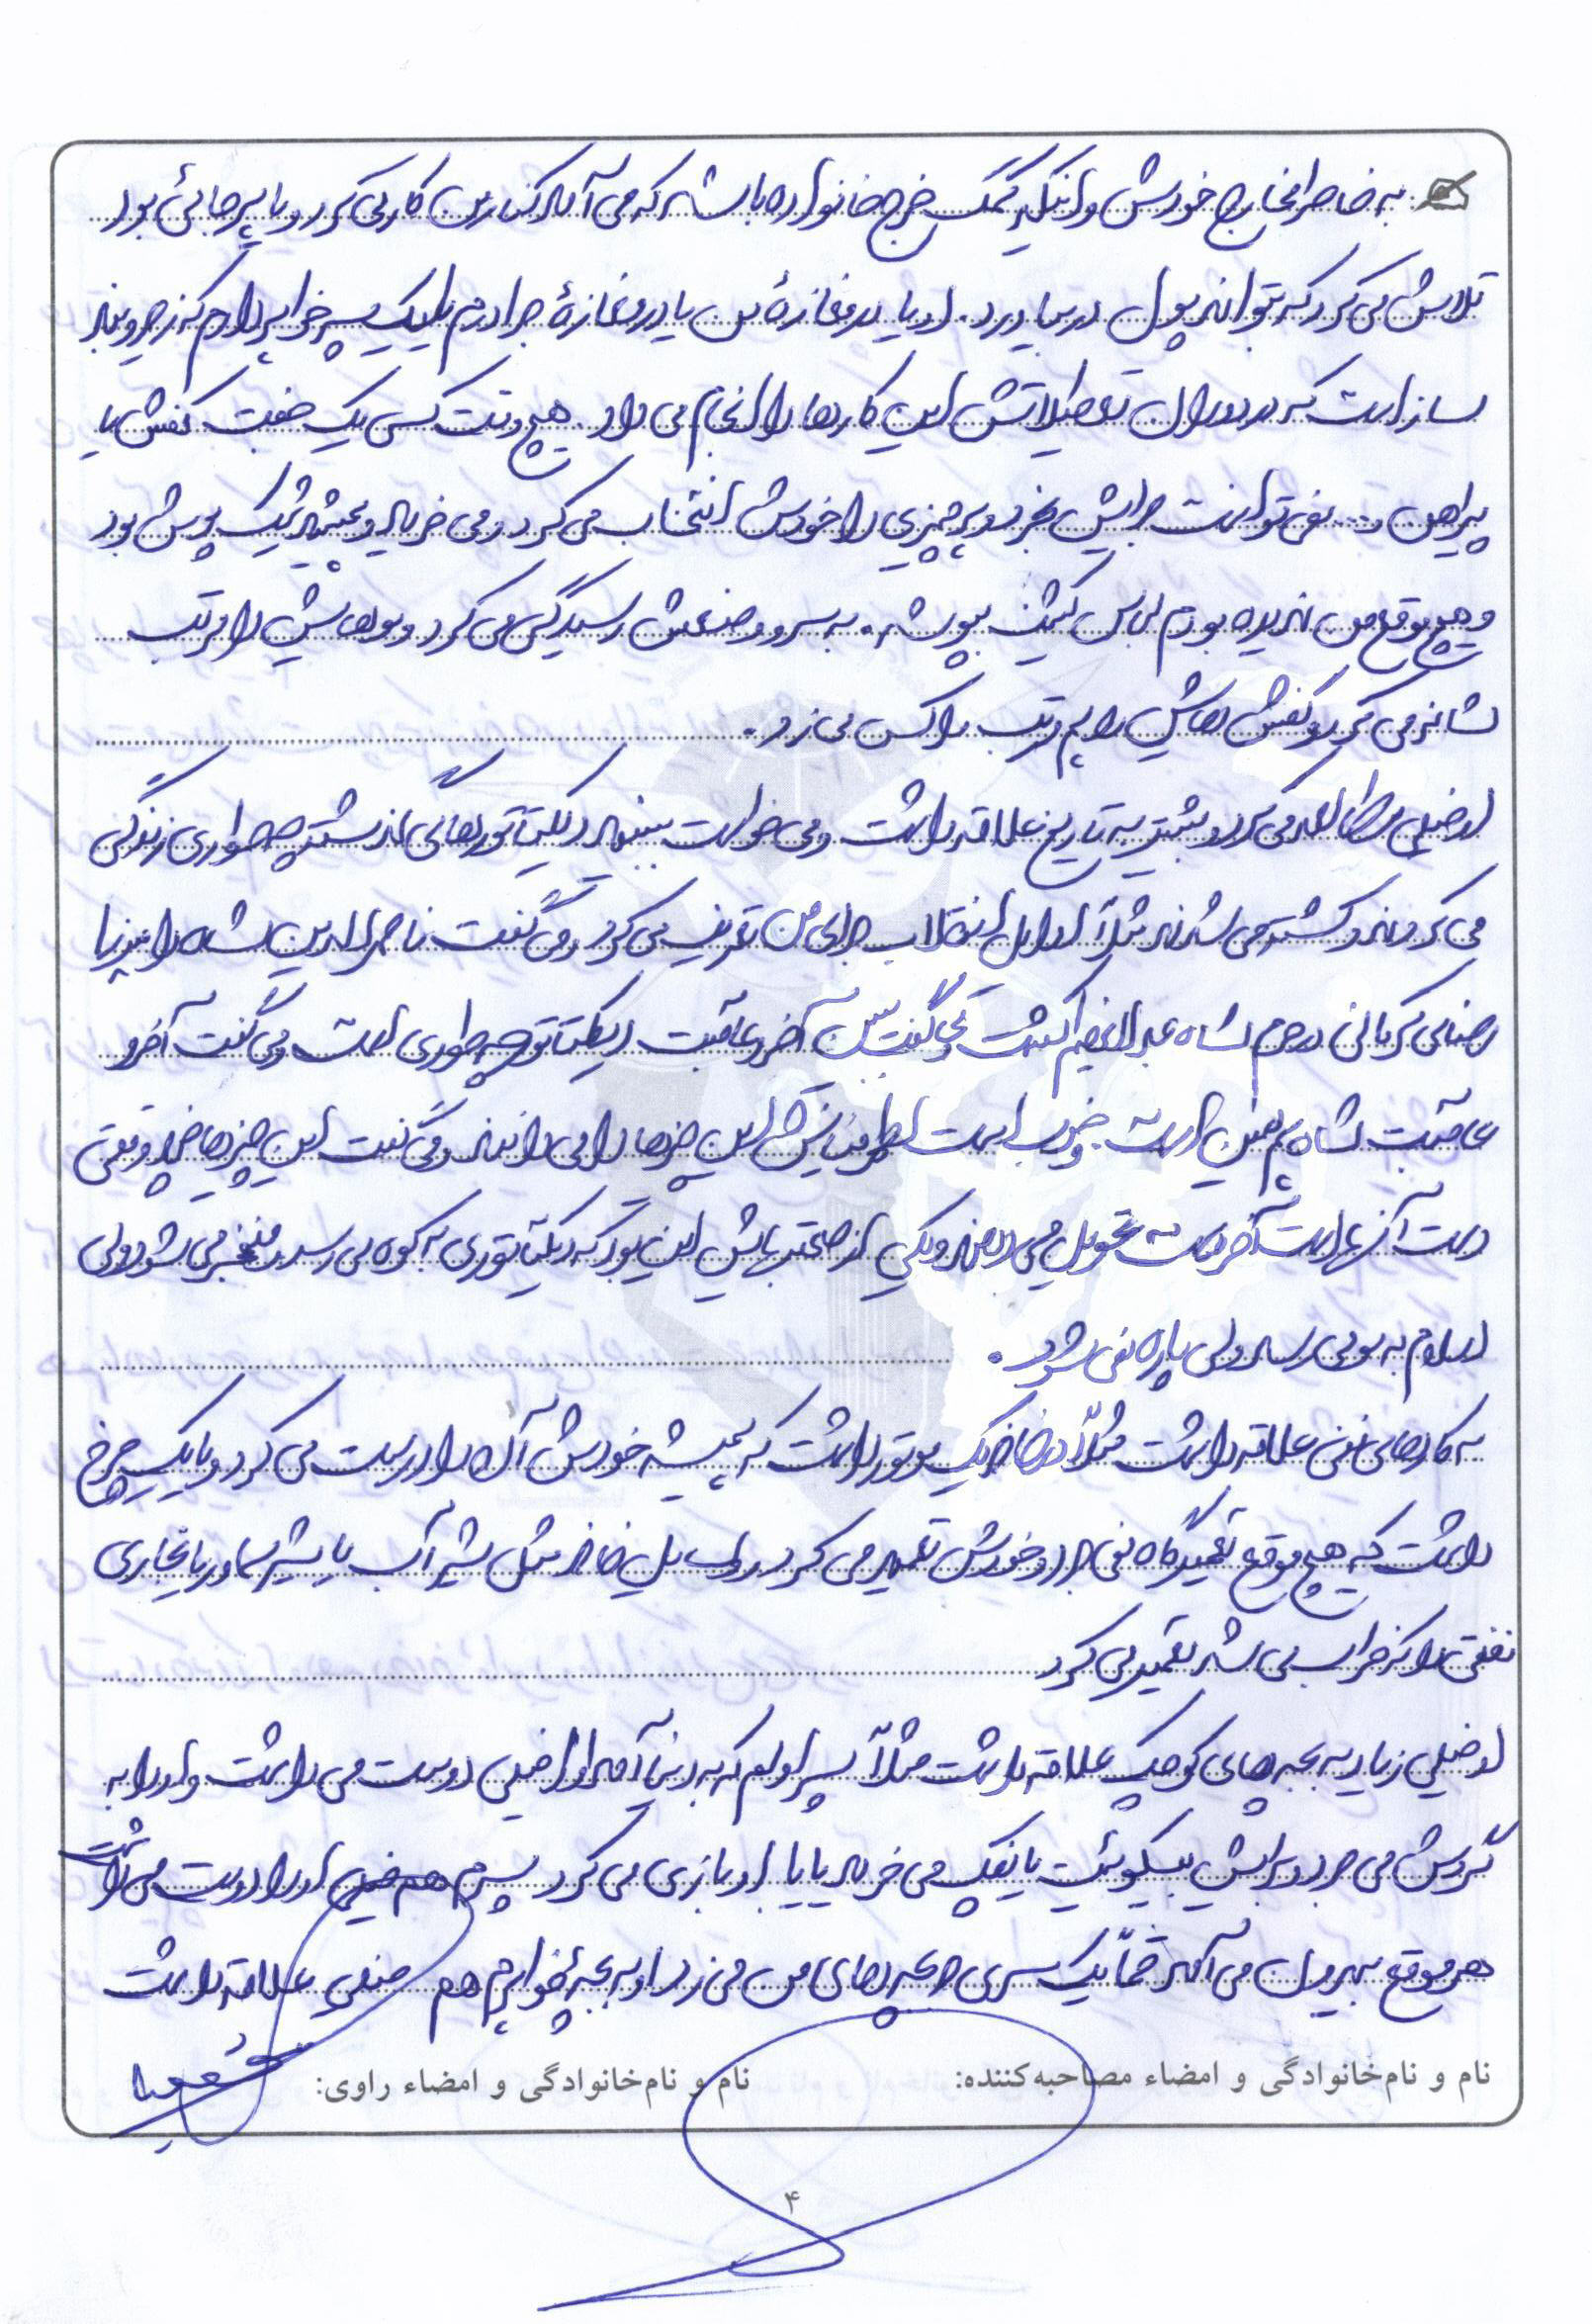 به خاطر مخارج خودش و اینکه کمک خرج خانواده باشد که می آمد کنار من کار می کرد و یا هر جائی بود
تلاش می کرد که بتواند پول دربیاورد. او یا در مغازهٔ من یا در مغازهٔ برادرم یا یک پسر خواهر دارم که در و پنجره
ساز است که در دوران تعطیلاتش این کارها را انجام می داد. هیچ وقت کسی یک جفت کفش یا
پیراهن و... نمی توانست برایش بخرد و هر چیزی را خودش انتخاب می کرد و می خرید و همیشه شیک پوش بود
و هیچ موقع من ندیده بودم لباس کثیف بپوشد. به سر و وضعش رسیدگی می کرد و موهایش را مرتب
شانه می کرد و کفش هایش را هم مرتب واکس می زد.
او خیلی مطالعه می کرد و بیشتر به تاریخ علاقه داشت و می خواست ببیند دیکتاتورهای گذشته چطوری زندگی
می کردند و کشته می شدند مثلاً اوایل انقلاب برای من تعریف می کرد و می گفت ناصرالدین شاه را میرزا
رضای کرمانی در حرم شاه عبدالعظیم کشت و می گفت ببین آخر و عاقبت دیکتاتور چطوری است و می گفت آخر و
عاقبت شاه هم همین است و خوب است اطرافیانش این چیزها را می دانند و می گفت این چیزها وقتی
دست آنها است آخر دست تحویل می دهند و یکی از صحبتهایش این بود که دیکتاتوری به کوه می رسد منفجر می شود ولی
اسلام به مویی می رسد ولی پاره نمی شود.
به کارهای فنی علاقه داشت مثلاً در خانه یک موتور داشت که همیشه خودش آن را درست می کرد و یا یک چرخ
داشت که هیچ موقع تعمیرگاه نمی برد و خودش تعمیر می کرد و وسایل خانه مثل شیر آب یا شیر سماور یا بخاری
نفتی را که خراب می شد تعمیر می کرد
او خیلی زیاد به بچه های کوچک علاقه داشت مثلاً پسر اولم که به دنیا آمد او را خیلی دوست می داشت و او را به
گردش می برد و برایش بیسکوئیت یا پفک می خرید یا با او بازی می کرد پسرم هم خیلی او را دوست می داشت
هر موقع بیرون می آمد حتماً یک سری به بچه های من می زد او به بچهٔ خواهرم هم خیلی علاقه داشت
نام و نام‌خانوادگی و امضاء مصاحبه‌کننده:
نام و نام‌خانوادگی و امضاء راوی:
۴